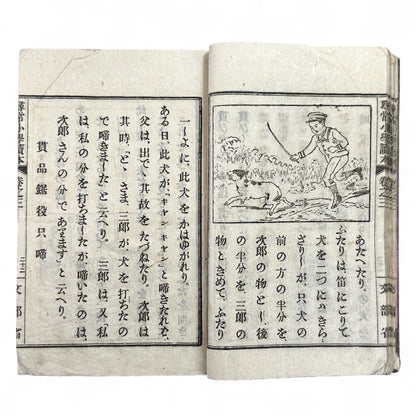 あたへたり。
ふたりは、笛にこりて、
犬を二つには、きら
ざりしが、只、犬の
前の方の半分を、
次郎の物とし、後
の半分を、三郎の
物ときめて、ふたり
尋常小學讀本
一しよに、此犬をかはゆがれり。
ある日、此犬が、キャンキャンと啼きたれば、
父は、出で、其故をたづねたり。次郎は
其時、「とゝさま、三郎が犬を打ちたの
で啼きました。」と云へり。三郎は、又「私
は、私の分を打ちましたが、啼いたのは、
次郎さんの分であります。」と云へり。
貰 品 鋸 役 只 啼
尋常小學讀本
文部省